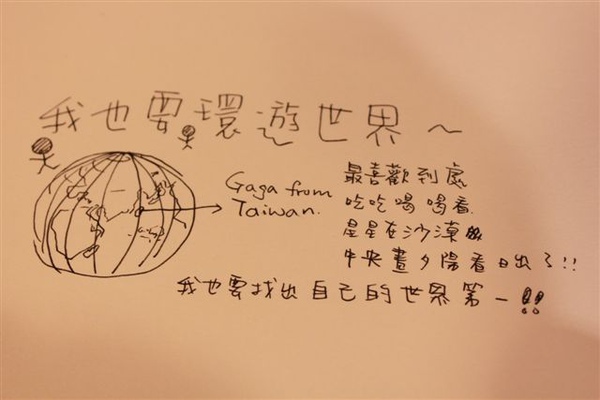 我也要環遊世界~
Gaga from
Taiwan.
最喜歡到處
吃吃喝喝看
星星在沙漠
中央畫夕陽看日出了!!
我也要找出自己的世界第一!!